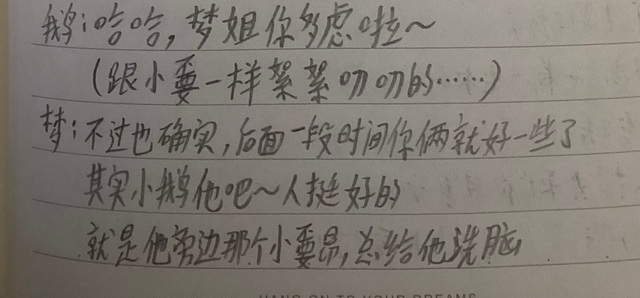 鹅:哈哈,梦姐你多虑啦~
(跟小要一样絮絮叨叨的……)
梦:不过也确实,后面一段时间你俩就好一些了
其实小鹅他吧~人挺好的
就是他旁边那个小要昂,总给他洗脑
HANG ON TO YOUR DREAMS